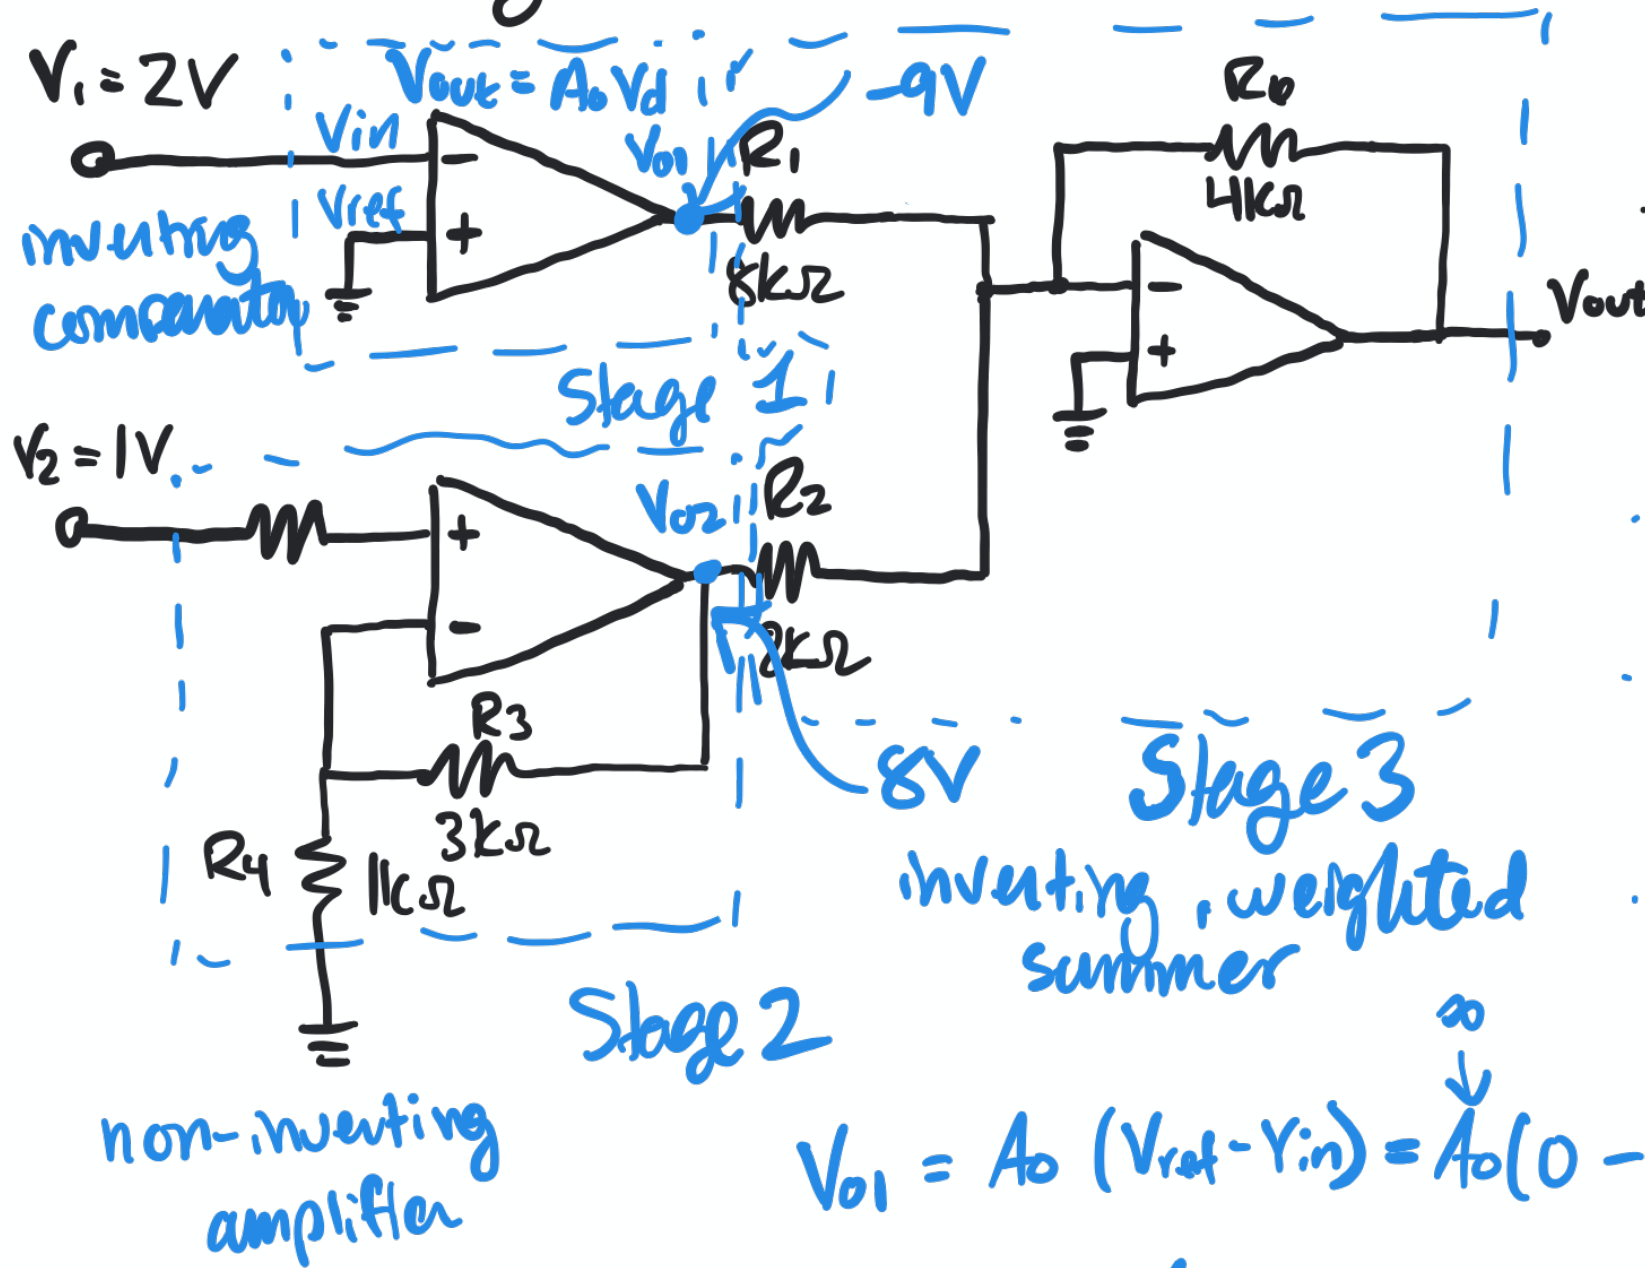 V₁ = 2V
Vout = A₀ Vd
-9V
Vin
Vo1
R₁
Vref
-
+
8kΩ
inverting
comparator
R₆
4kΩ
-
+
Vout
Stage 1
V₂ = 1V
+
-
Vo2
R₂
2kΩ
R3
3kΩ
8V
R4
1kΩ
Stage 3
inverting, weighted
summer
Stage 2
non-inverting
amplifier
∞
Vo1 = A₀ (Vref - Vin) = A₀(0 -